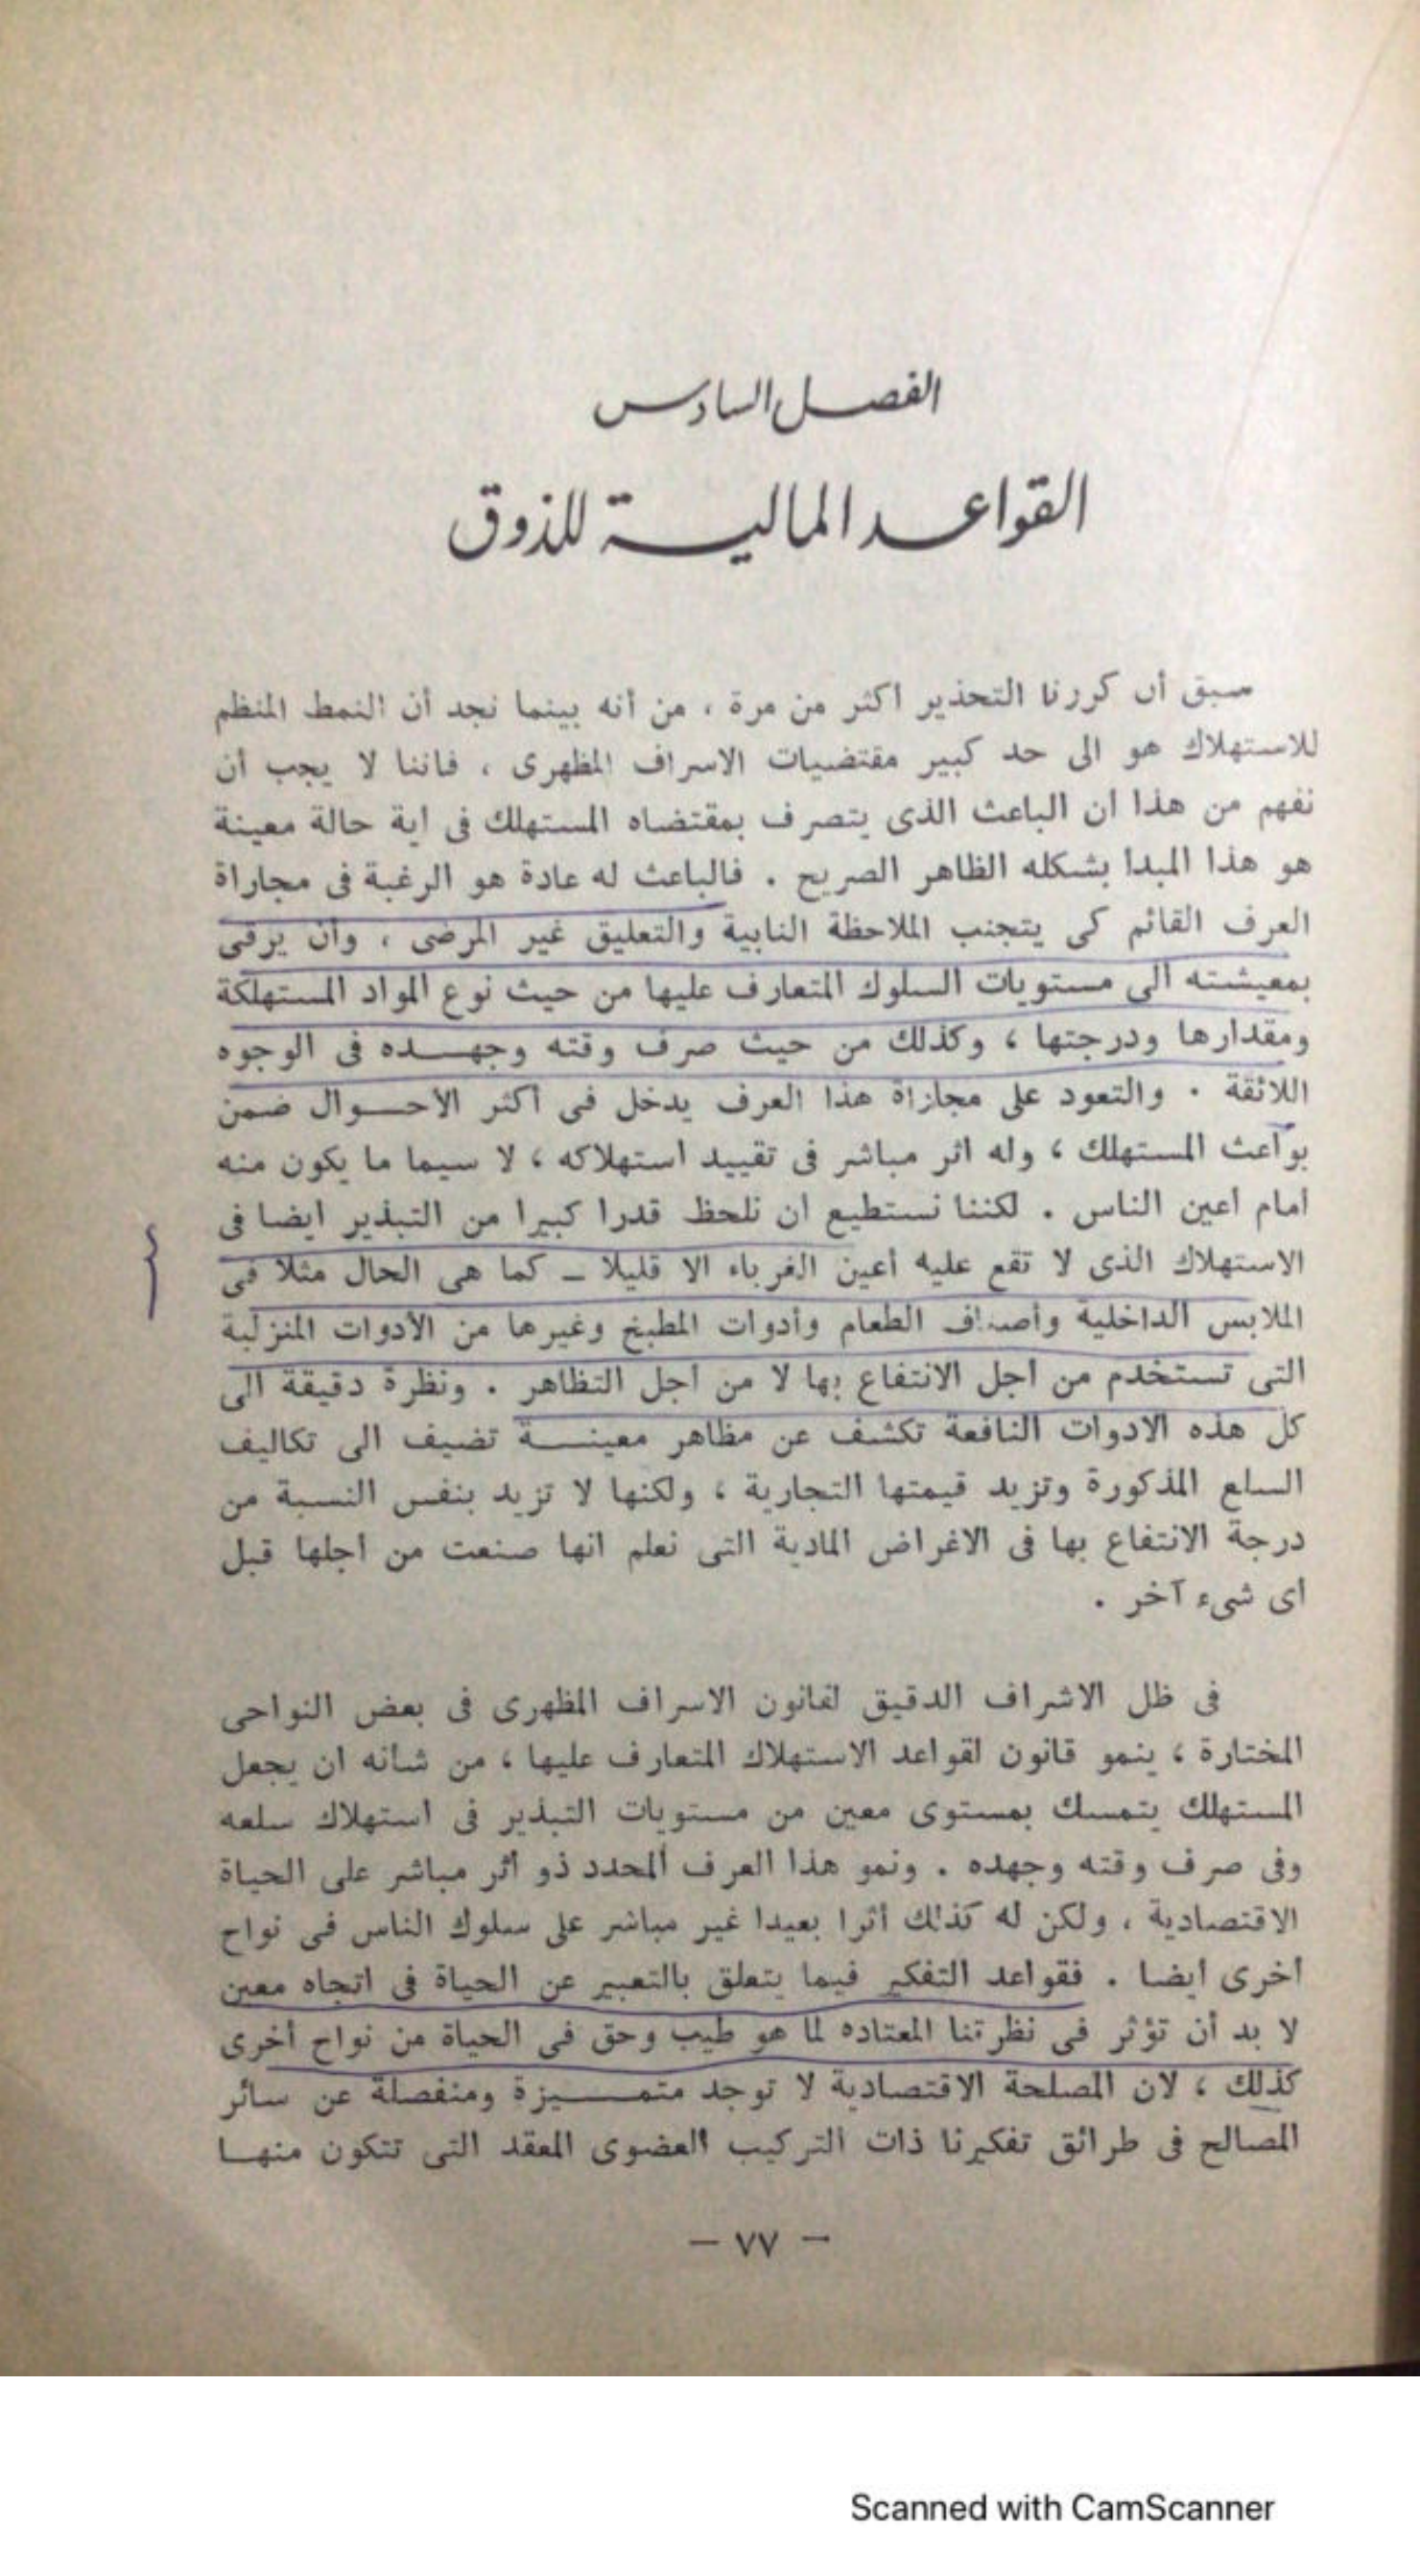 الفصل السادس
القواعد المالية للذوق
سبق أن كررنا التحذير أكثر من مرة ، من أنه بينما نجد أن النمط المنظم
للاستهلاك هو الى حد كبير مقتضيات الاسراف المظهرى ، فاننا لا يجب أن
نفهم من هذا ان الباعث الذى يتصرف بمقتضاه المستهلك فى اية حالة معينة
هو هذا المبدا بشكله الظاهر الصريح . فالباعث له عادة هو الرغبة فى مجاراة
العرف القائم كى يتجنب الملاحظة النابية والتعليق غير المرضى ، وان يرقى
بمعيشته الى مستويات السلوك المتعارف عليها من حيث نوع المواد المستهلكة
ومقدارها ودرجتها ، وكذلك من حيث صرف وقته وجهده فى الوجوه
اللائقة . والتعود على مجازاة هذا العرف يدخل فى أكثر الاحوال ضمن
بواعث المستهلك ، وله اثر مباشر فى تقييد استهلاكه ، لا سيما ما يكون منه
امام اعين الناس . لكننا نستطيع ان نلحظ قدرا كبيرا من التبذير ايضا فى
الاستهلاك الذى لا تقع عليه أعين الغرباء الا قليلا – كما هى الحال مثلا فى
الملابس الداخلية وأصناف الطعام وأدوات المطبخ وغيرها من الأدوات المنزلية
التى تستخدم من اجل الانتفاع بها لا من اجل التظاهر . ونظرة دقيقة الى
كل هذه الادوات النافعة تكشف عن مظاهر معينة تضيف الى تكاليف
السلع المذكورة وتزيد قيمتها التجارية ، ولكنها لا تزيد بنفس النسبة من
درجة الانتفاع بها فى الاغراض المادية التى نعلم انها صنعت من اجلها قبل
اى شىء آخر .
فى ظل الاشراف الدقيق لقانون الاسراف المظهرى فى بعض النواحى
المختارة ، ينمو قانون لقواعد الاستهلاك المتعارف عليها ، من شانه ان يجعل
المستهلك يتمسك بمستوى معين من مستويات التبذير فى استهلاك سلعه
وفى صرف وقته وجهده . ونمو هذا العرف المحدد ذو أثر مباشر على الحياة
الاقتصادية ، ولكن له كذلك أثرا بعيدا غير مباشر على سلوك الناس فى نواح
اخرى ايضا . فقواعد التفكير فيما يتعلق بالتعبير عن الحياة فى اتجاه معين
لا بد أن تؤثر فى نظرتنا المعتاده لما هو طيب وحق فى الحياة من نواح أخرى
كذلك ، لان المصلحة الاقتصادية لا توجد متميزة ومنفصلة عن سائر
المصالح فى طرائق تفكيرنا ذات التركيب العضوى المعقد التى تتكون منها
– ٧٧ –
Scanned with CamScanner